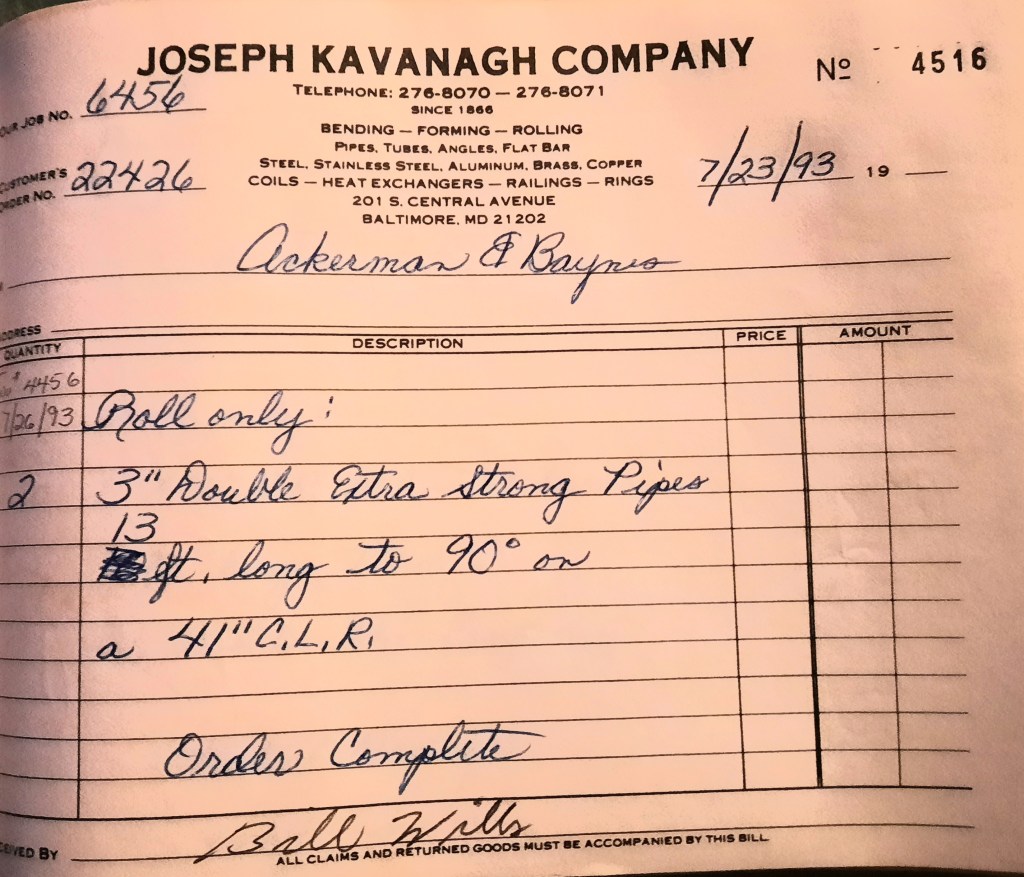 JOSEPH KAVANAGH COMPANY
Nº 4516
TELEPHONE: 276-8070 — 276-8071
SINCE 1866
OUR JOB NO. 6456
BENDING — FORMING — ROLLING
PIPES, TUBES, ANGLES, FLAT BAR
STEEL, STAINLESS STEEL, ALUMINUM, BRASS, COPPER
CUSTOMER'S ORDER NO. 22426
COILS — HEAT EXCHANGERS — RAILINGS — RINGS
7/23/93 19
201 S. CENTRAL AVENUE
BALTIMORE, MD 21202
Ackerman & Baynes
ADDRESS
QUANTITY DESCRIPTION PRICE AMOUNT
4456
7/26/93 Roll only:
2 3" Double Extra Strong Pipes
13
ft. long to 90° on
a 41" C.L.R.
Order Complete
RECEIVED BY Bill Wills
ALL CLAIMS AND RETURNED GOODS MUST BE ACCOMPANIED BY THIS BILL